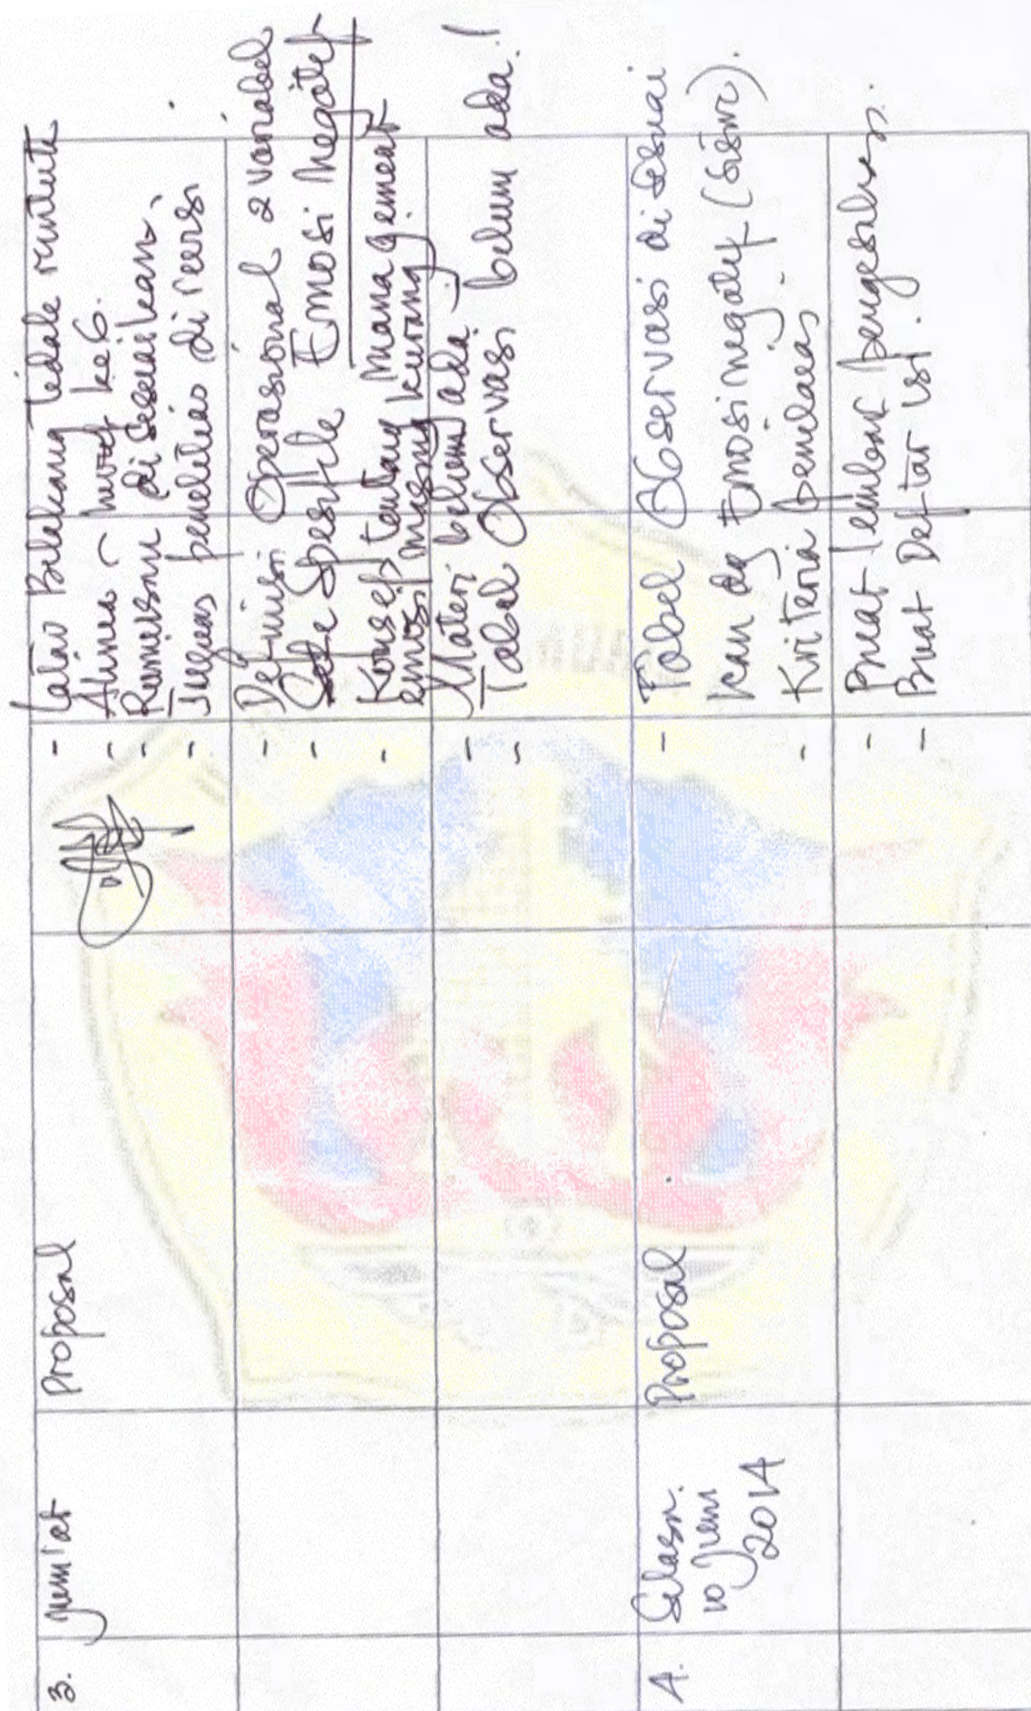 3.
Jum'at
Proposal
- Latar Belakang tidak runtut
- Alinea ~ huruf ke 6.
- Rumusan disesuaikan,
- Tujuan penelitian di revisi
- Definisi Operasional 2 variabel
- Spesifik Emosi Negatif
- Konsep tentang managemeat
emosi masing kurang
- Materi belum ada
- Tabel Observasi belum ada !
4.
Selasa.
10 Juni
2014
Proposal
- Tabel Observasi di sesuai
kan dg Emosi negatif (siswi).
- Kriteria penilaian
- Buat lembar pengesahan.
- Buat Deftar isi.